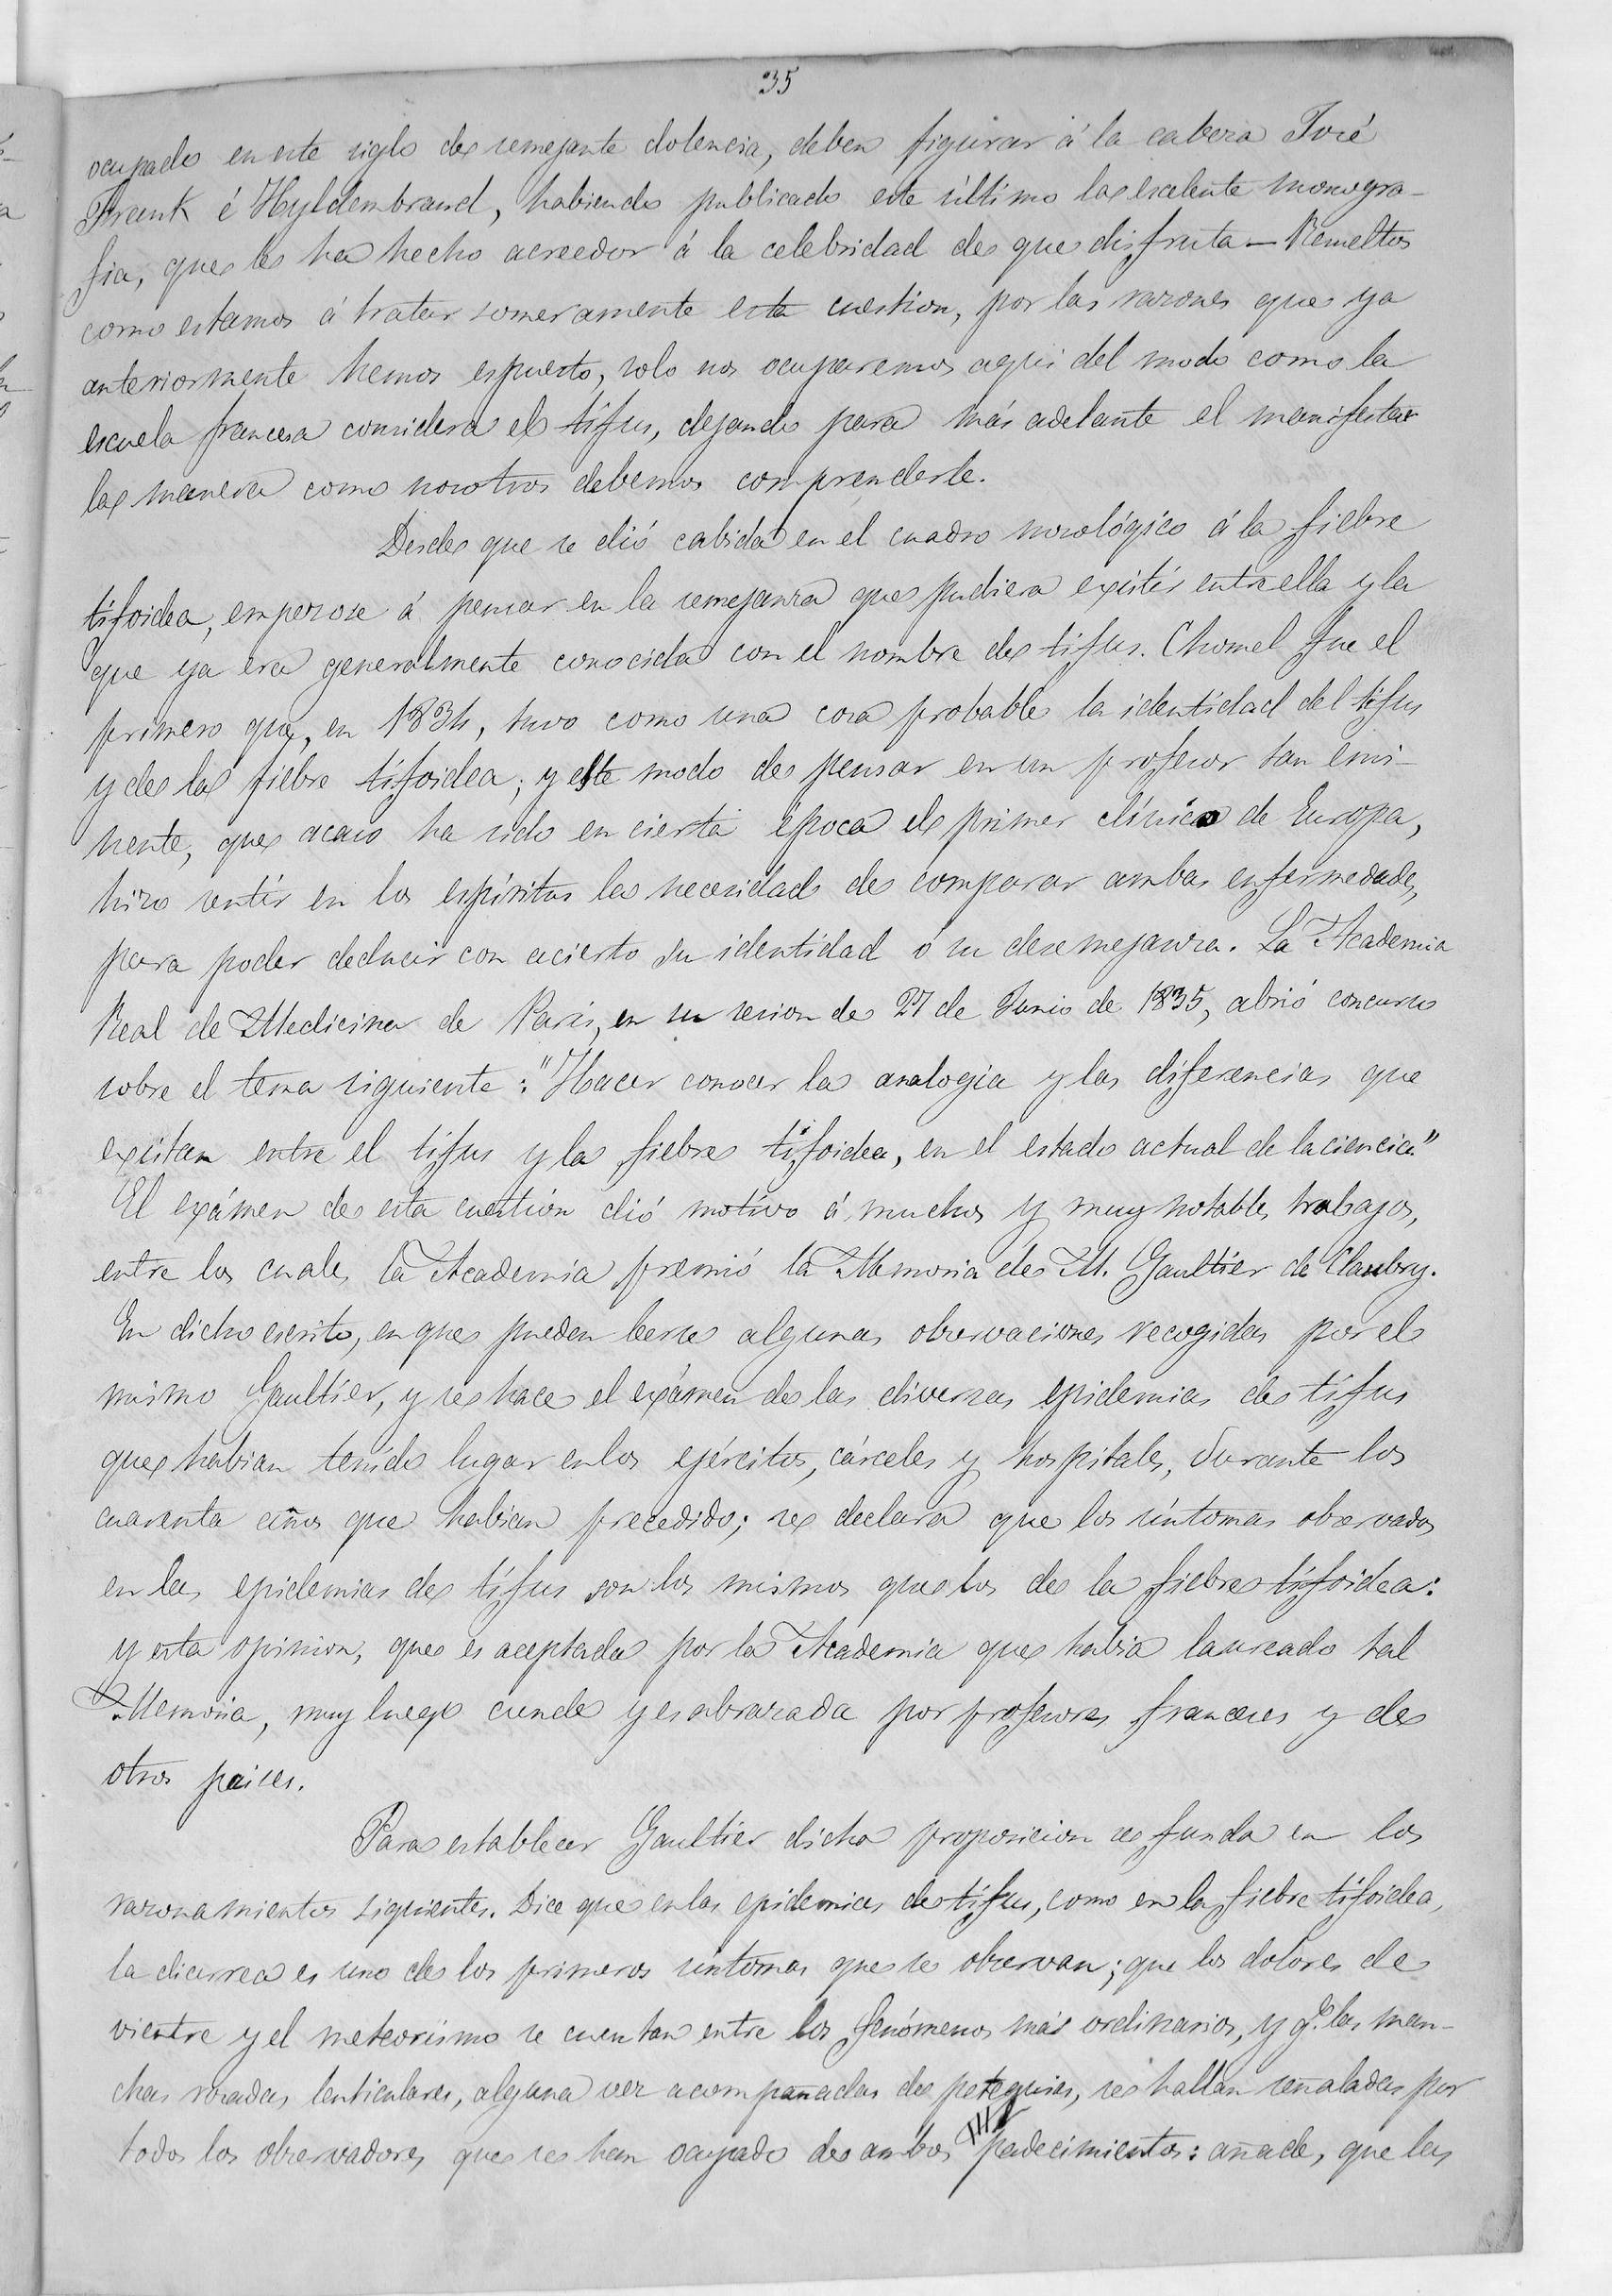 35
ocupado en este siglo de semejante dolencia, deben figurar á la cabeza José
Frank é Hyldembrand, habiendo publicado este último la escelente monogra-
fia, que le ha hecho acreedor á la celebridad de que disfruta — Resueltos
como estamos á tratar someramente esta cuestion, por las razones que ya
anteriormente hemos espuesto, solo nos ocuparemos aqui del modo como la
escuela francesa considera el tífus, dejando para más adelante el manifestar
la manera como nosotros debemos comprenderle.
Desde que se dió cabida en el cuadro nosológico á la fiebre
tifoidea, empezose á pensar en la semejanza que pudiera existir entre ella y la
que ya era generalmente conocida con el nombre de tifus. Chomel fue el
primero que, en 1834, tuvo como una cosa probable la identidad del tifus
y de la fiebre tifoidea; y este modo de pensar en un profesor tan emi-
nente, que acaso ha sido en cierta época el primer clínico de Europa,
hizo sentir en los espíritus la necesidad de comparar ambas enfermedades,
para poder deducir con acierto su identidad ó su desemejanza. La Academia
Real de Medicina de Paris, en su sesion de 27 de Junio de 1835, abrió concurso
sobre el tema siguiente: "Hacer conocer la analogia y las diferencias que
existan entre el tifus y la fiebre tifoidea, en el estado actual de la ciencia."
El exámen de esta cuestión dió motivo á muchos y muy notables trabajos,
entre los cuales la Academia premió la Memoria de M. Gaultier de Claubry.
En dicho escrito, en que pueden leerse algunas observaciones recogidas por el
mismo Gaultier, y se hace el exámen de las diversas epidemias de tifus
que habian tenido lugar en los ejércitos, cárceles y hospitales, durante los
cuarenta años que habian precedido; se declara que los síntomas observados
en las epidemias de tífus son los mismos que los de la fiebre tifoidea:
y esta opinion, que es aceptada por la Academia que habia laureado tal
Memoria, muy luego cunde y es abrazada por profesores franceses y de
otros paises.
Para establecer Gaultier dicha proposicion se funda en los
razonamientos siguientes. Dice que en las epidemias de tífus, como en la fiebre tifoidea,
la diarrea es uno de los primeros síntomas que se observan; que los dolores de
vientre y el meteorismo se cuentan entre los fenómenos más ordinarios, y q.e las man-
chas rosadas lenticulares, alguna vez acompañadas de petequias, se hallan señaladas por
todos los observadores que se han ocupado de ambos padecimientos: añade, que las